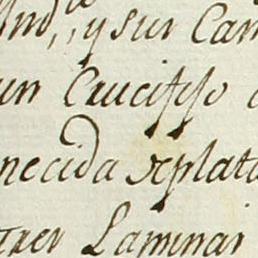 y sur Cam
un Crucifixo
necida deplata
trer Laminar